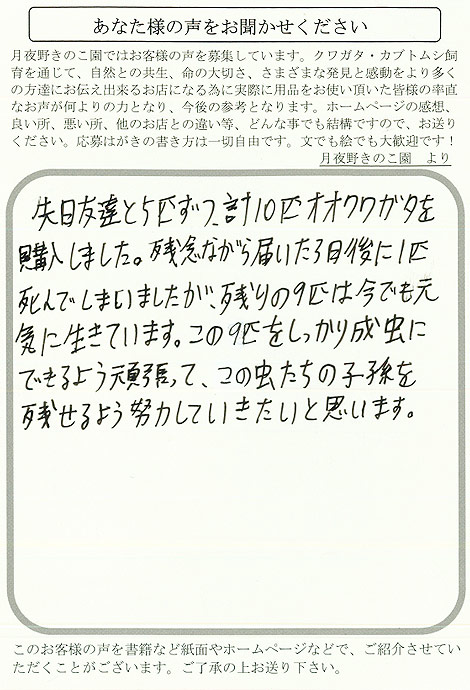 あなた様の声をお聞かせください
月夜野きのこ園ではお客様の声を募集しています。クワガタ・カブトムシ飼
育を通じて、自然との共生、命の大切さ、さまざまな発見と感動をより多く
の方達にお伝え出来るお店になる為に実際に用品をお使い頂いた皆様の率直
なお声が何よりの力となり、今後の参考となります。ホームページの感想、
良い所、悪い所、他のお店との違い等、どんな事でも結構ですので、お送り
ください。応募はがきの書き方は一切自由です。文でも絵でも大歓迎です！
月夜野きのこ園　より
失日友達と5匹ずつ、計10匹オオクワガタを
購入しました。残念ながら届いた3日後に1匹
死んでしまいましたが、残りの9匹は今でも元
気に生きています。この9匹をしっかり成虫に
できるよう頑張って、この虫たちの子孫を
残せるよう努力していきたいと思います。
このお客様の声を書籍など紙面やホームページなどで、ご紹介させてい
ただくことがございます。ご了承の上お送り下さい。